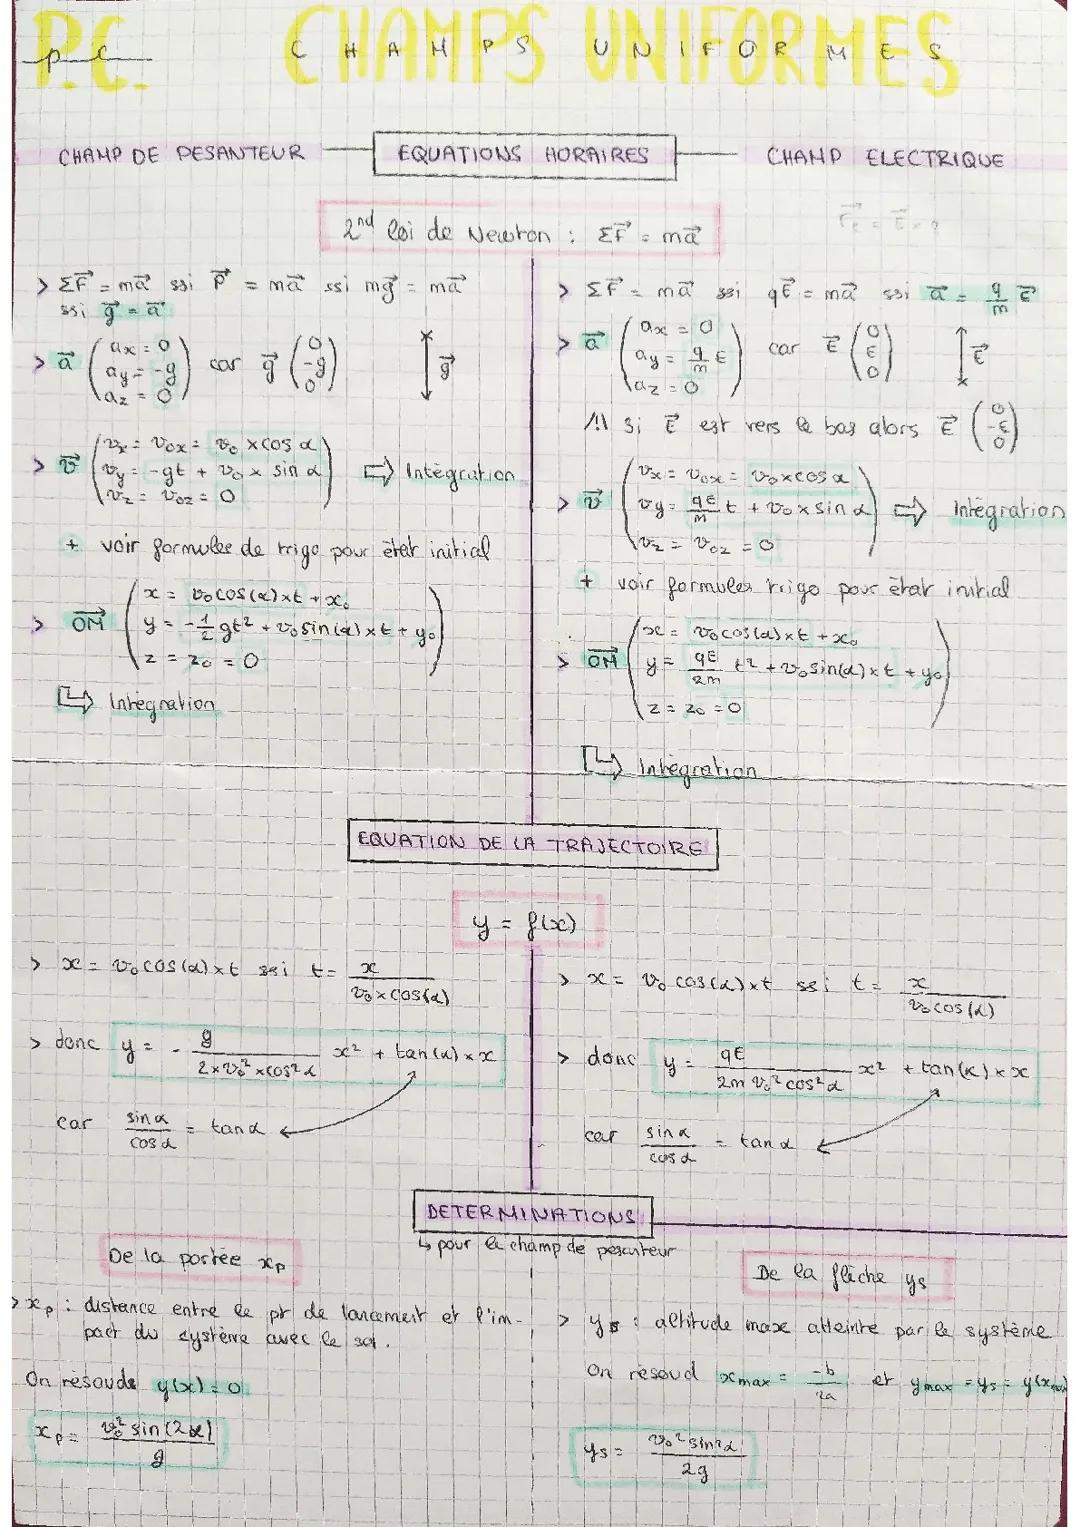 P.C. CHAMPS UNIFORMES
CHAMP DE PESANTEUR
EQUATIONS HORAIRES
CHAMP ELECTRIQUE
2nd loi de Newton : ΣF⃗ = ma⃗
> ΣF⃗ = ma⃗ ssi P⃗ = ma⃗ ssi mg⃗ = ma⃗
ssi g⃗ = a⃗
> a⃗ ( ax = 0
ay = -g
az = 0 ) car g⃗ ( 0
-g
0 ) g⃗
> v⃗ ( vx = v0x = v0 × cos α
vy = -gt + v0 × sin α
vz = v0z = 0 ) ⇨ Intégration
+ voir formules de trigo pour état initial
> OM⃗ ( x = v0 cos(α)×t + x0
y = -1/2 gt² + v0 sin(α)×t + y0
z = z0 = 0 )
↳ Intégration
> ΣF⃗ = ma⃗ ssi qE⃗ = ma⃗ ssi a⃗ = q/m E⃗
> a⃗ ( ax = 0
ay = q/m E
az = 0 ) car E⃗ ( 0
E
0 ) E⃗
/!\ si E⃗ est vers le bas alors E⃗ ( 0
-E
0 )
> v⃗ ( vx = v0x = v0×cos α
vy = qE/m t + v0×sin α
vz = v0z = 0 ) ⇨ Intégration
+ voir formules trigo pour état initial
> OM⃗ ( x = v0cos(α)×t + x0
y = qE/2m t² + v0sin(α)×t + y0
z = z0 = 0 )
↳ Intégration
EQUATION DE LA TRAJECTOIRE
y = f(x)
> x = v0 cos(α)×t ssi t = x / v0×cos(α)
> donc y = - g / 2×v0²×cos²α x² + tan(α)×x
car sin α / cos α = tan α
> x = v0 cos(α)×t ssi t = x / v0 cos(α)
> donc y = qE / 2m v0² cos²α x² + tan(α)×x
car sin α / cos α = tan α
DETERMINATIONS
↳ pour le champ de pesanteur
De la portée xp
> xp : distance entre le pt de lancement et l'im-
pact du système avec le sol.
On résoude y(x) = 0
xp = v0² sin(2α) / g
De la flèche ys
> ys : altitude max atteinte par le système
On résoud xmax = -b / 2a et ymax = ys = y(xmax)
ys = v0² sin²α / 2g